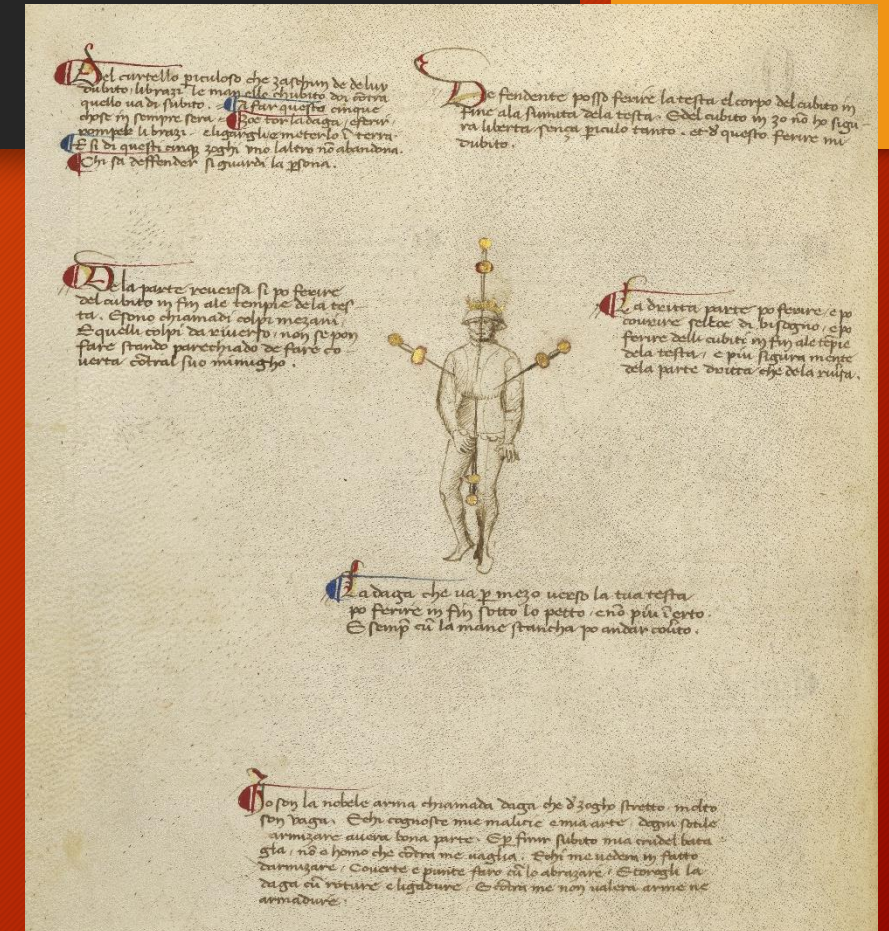 Del curtello piculoso che zaschun de de luy
dubito, librazi le man elle chubito doi cōtra
quello va di subito. A far questo cinque
chose in sempre sera. Zoe tor la daga, e ferir,
romper li brazi, e ligargli e meterlo ī terra.
E si di questi cinq zoghi uno laltro nō abandona.
Chi sa deffender si guardi la psona.
De fendente posso ferire la testa el corpo del cubito in
fine ala sumita dela testa. E del cubito in zo nō ho sigu-
ra liberta senza piculo tanto. et d questo ferire mi
dubito.
De la parte reversa si po ferire
del cubito in fin ale tempie dela tes
ta. E sono chiamadi colpi mezani.
E quelli colpi da riverso, non se pon
fare stando parechiado de fare co
verta cōtral suo inimigho.
La dritta parte po ferire, e po
covrire se ello e di bisogno, e po
ferire delli cubiti in fin ale tēpie
dela testa, e piu sigura mente
dela parte dritta che dela riv̄sa.
La daga che va p mezo verso la tua testa
po ferire in fin sotto lo petto, e nō piu ī erto.
E semp cū la mane stancha po andar covto.
Io son la nobele arma chiamada daga che d zogho stretto molto
son vaga. E chi cognosce mie malicie e mia arte, dogni sotile
armizare avera bona parte. E p finir subito mia crudel bata
gla, nō e homo che cōtra me vaglia. E chi me vedera in fatto
darmizare, Coverte e punte faro cū lo abrazare. E torogli la
daga cū roture e ligadure. E cōtra me non valera arme ne
armadure.